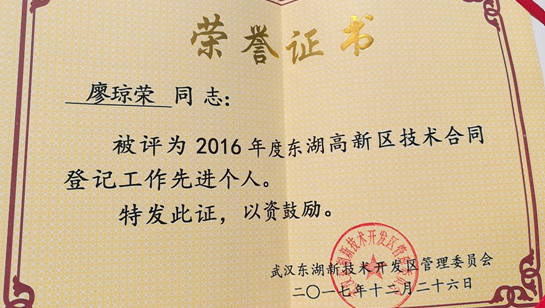 荣誉证书
廖琼荣 同志：
被评为 2016 年度东湖高新区技术合同
登记工作先进个人。
特发此证，以资鼓励。
武汉东湖新技术开发区管理委员会
二〇一七年十二月二十六日